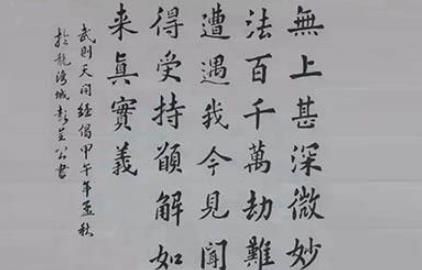 無上甚深微妙
法百千萬劫難
遭遇我今見聞
得受持願解如
來真實義
武則天開經偈甲午年孟秋
於龍海城彭公書